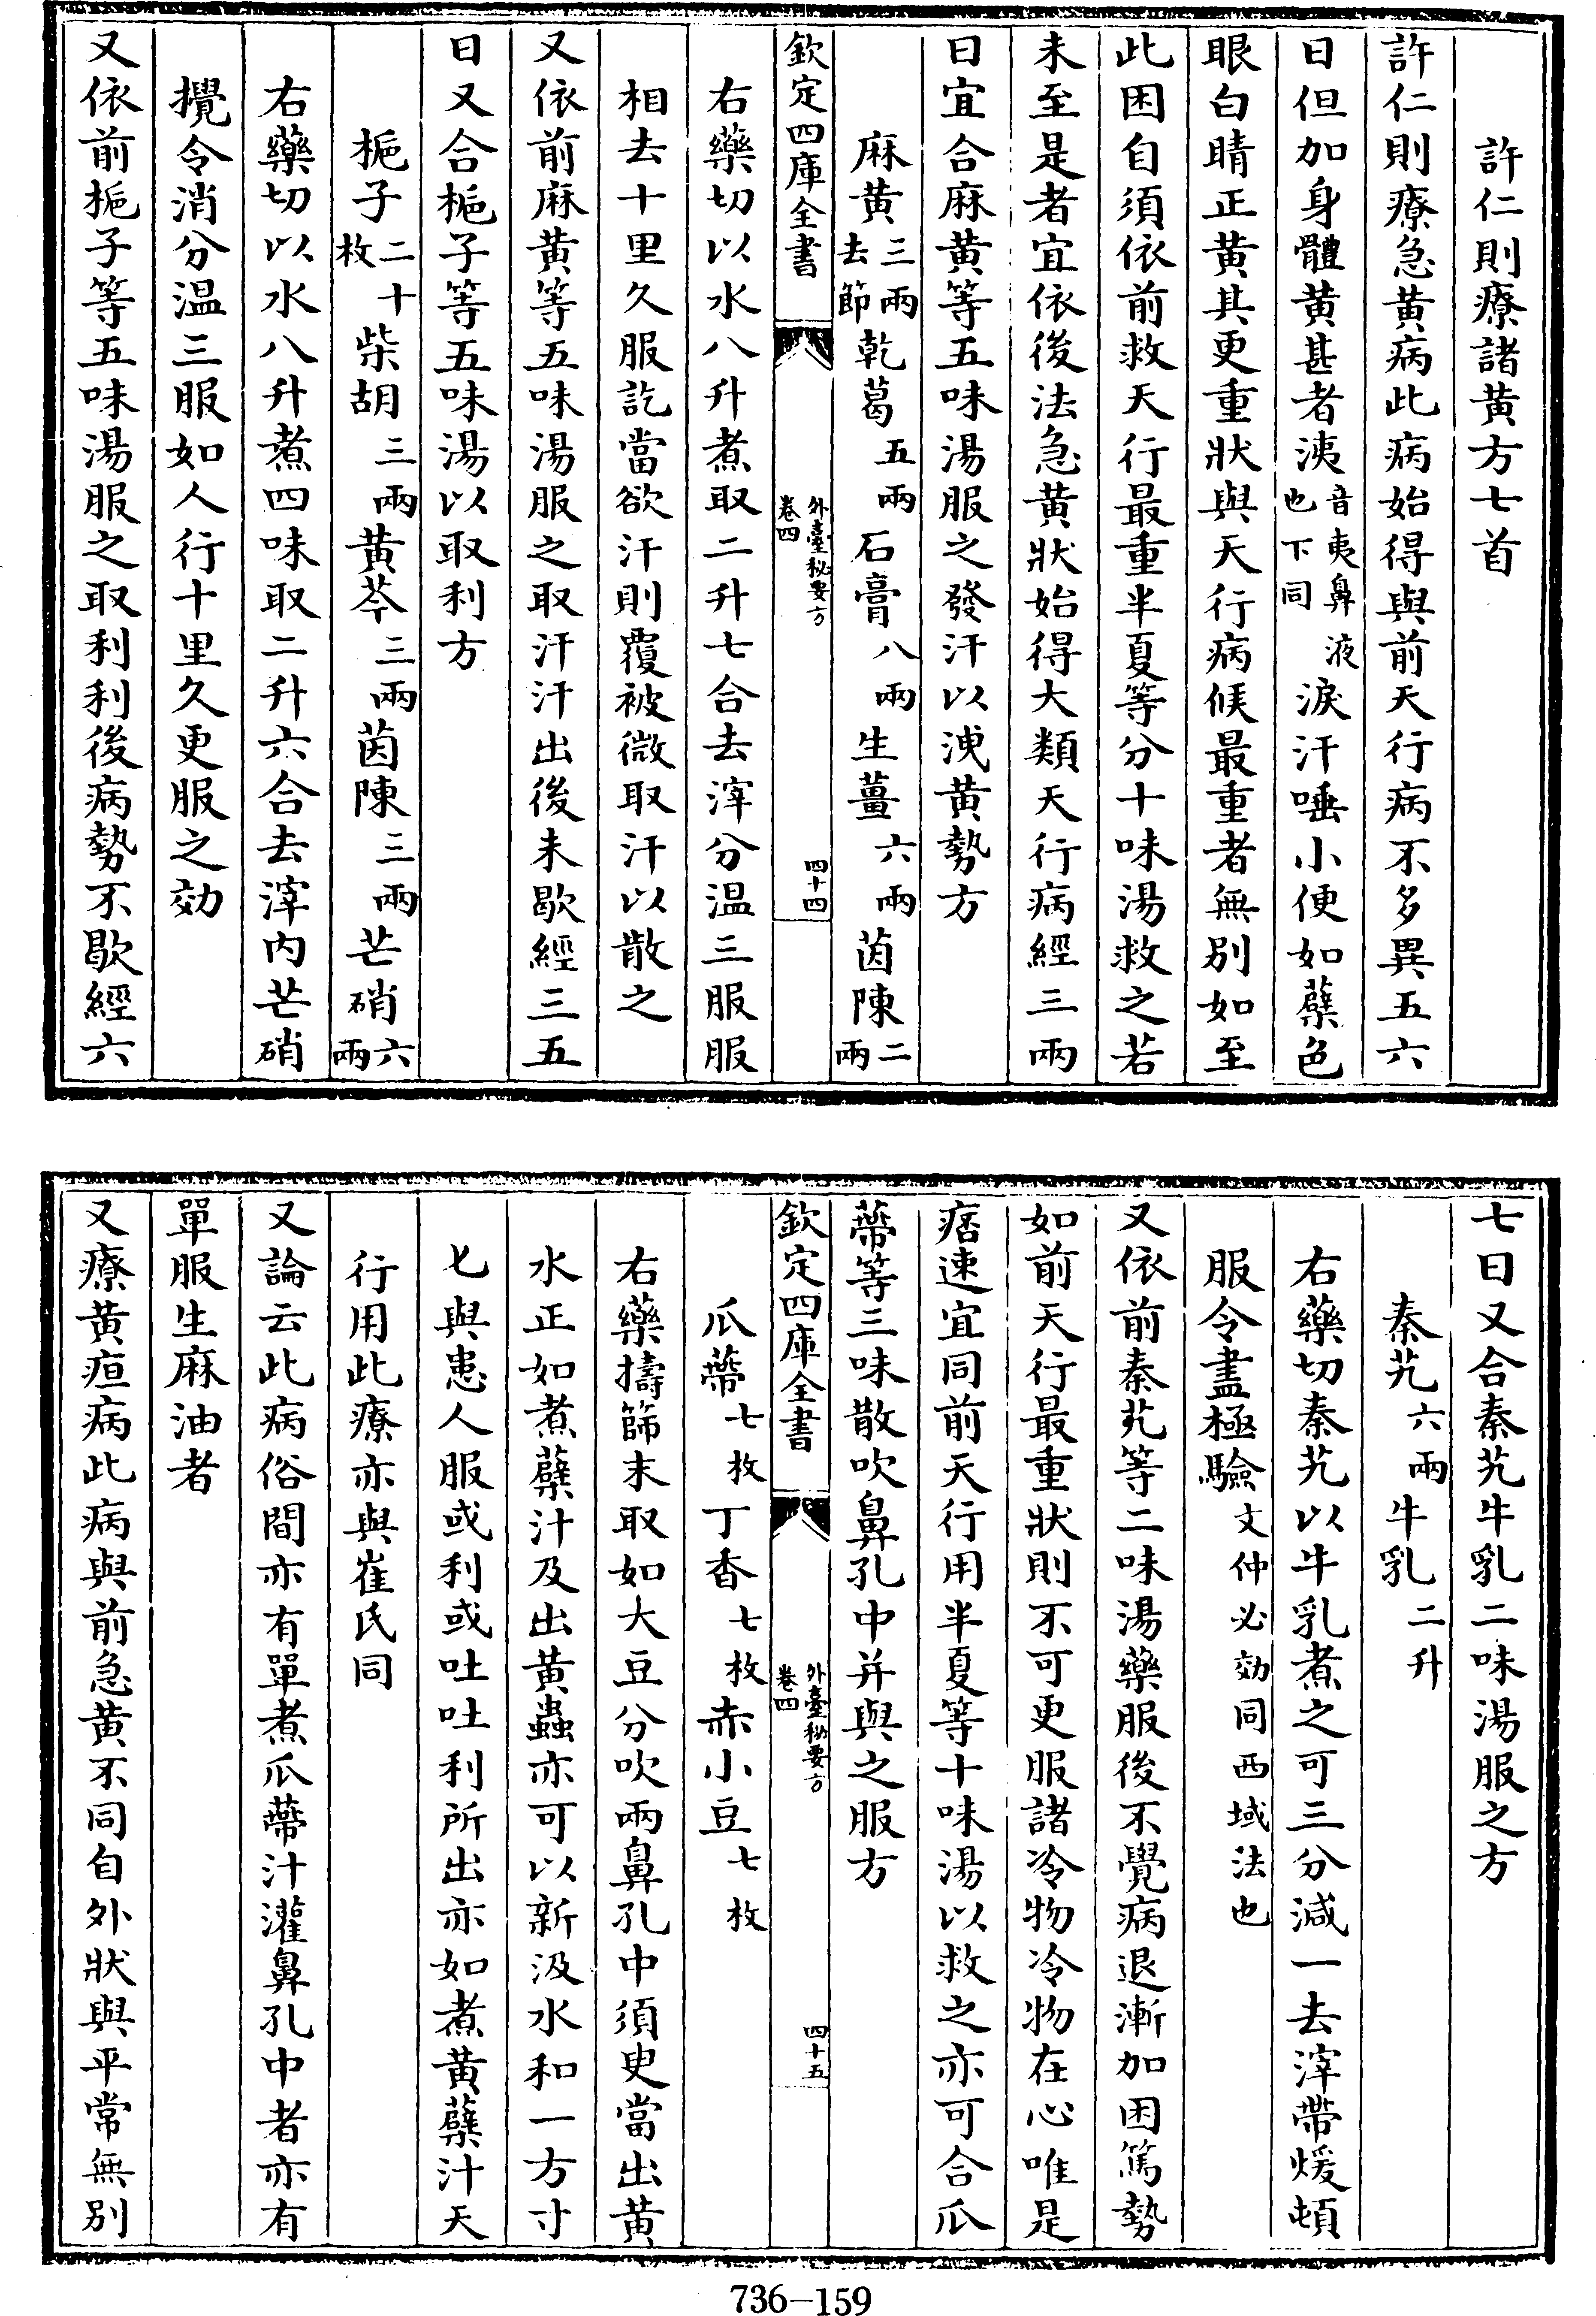 許仁則療諸黄方七首
許仁則療急黄病此病始得與前天行病不多異五六
日但加身體黄甚者洟音夷鼻液也下同淚汗唾小便如蘗色
眼白睛正黄其更重狀與天行病候最重者無别如至
此困自須依前救天行最重半夏等分十味湯救之若
未至是者宜依後法急黄狀始得大類天行病經三兩
日宜合麻黄等五味湯服之發汗以洩黄勢方
麻黄三兩去節乾葛五兩石膏八兩生薑六兩茵陳二兩
欽定四庫全書 外臺秘要方卷四 四十四
右藥切以水八升煮取二升七合去滓分温三服服
相去十里久服訖當欲汗則覆被微取汗以散之
又依前麻黄等五味湯服之取汗汗出後未歇經三五
日又合梔子等五味湯以取利方
梔子二十枚柴胡三兩黄芩三兩茵陳三兩芒硝六兩
右藥切以水八升煮四味取二升六合去滓内芒硝
攪令消分温三服如人行十里久更服之効
又依前梔子等五味湯服之取利利後病勢不歇經六
七日又合秦艽牛乳二味湯服之方
秦艽六兩牛乳二升
右藥切秦艽以牛乳煮之可三分減一去滓帶煖頓
服令盡極驗文仲必効同西域法也
又依前秦艽等二味湯藥服後不覺病退漸加困篤勢
如前天行最重狀則不可更服諸冷物冷物在心唯是
痞速宜同前天行用半夏等十味湯以救之亦可合瓜
蔕等三味散吹鼻孔中并與之服方
欽定四庫全書 外臺秘要方卷四 四十五
瓜蔕七枚丁香七枚赤小豆七枚
右藥擣篩末取如大豆分吹兩鼻孔中須臾當出黄
水正如煮蘗汁及出黄蟲亦可以新汲水和一方寸
匕與患人服或利或吐吐利所出亦如煮黄蘗汁天
行用此療亦與崔氏同
又論云此病俗間亦有單煮瓜蔕汁灌鼻孔中者亦有
單服生麻油者
又療黄疸病此病與前急黄不同自外狀與平常無别
736-159